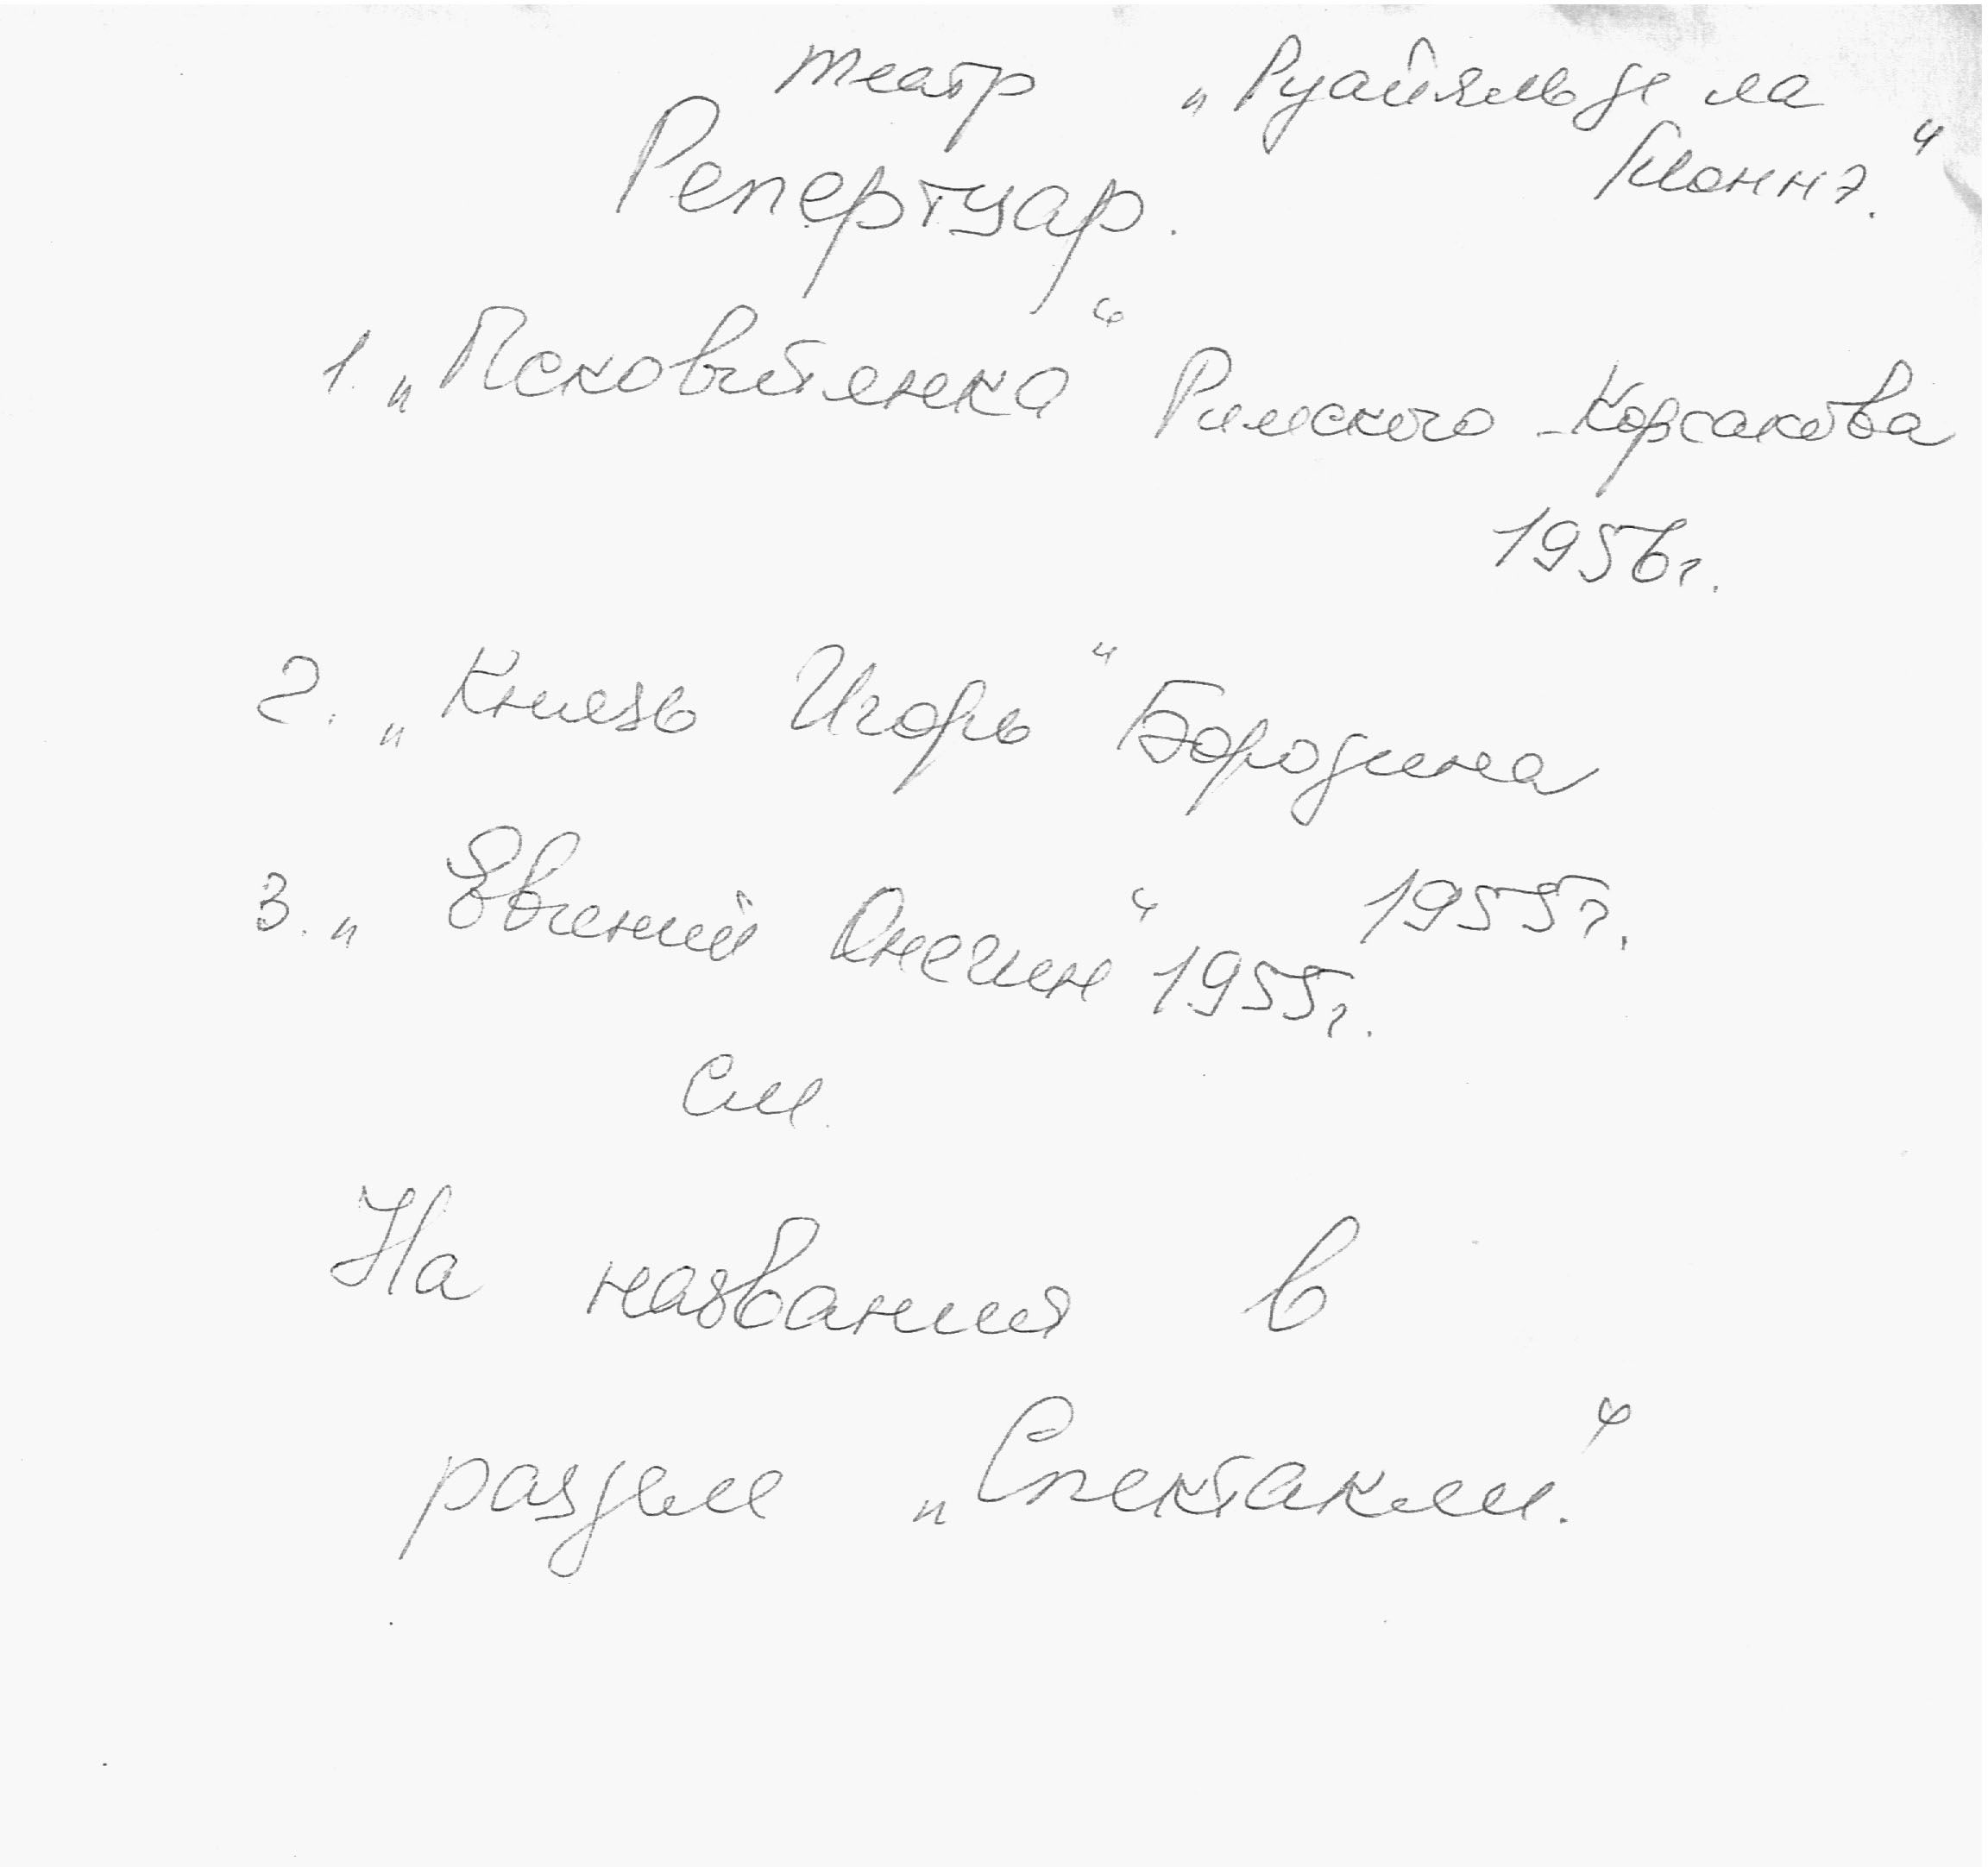 театр „Руайяль де ла
Моннэ."
Репертуар.
1. „Псковитянка" Римского-Корсакова
1956г.
2. „Князь Игорь" Бородина
1955г.
3. „Евгений Онегин" 1955г.
см.
На названия в
раздел „Спектакли."